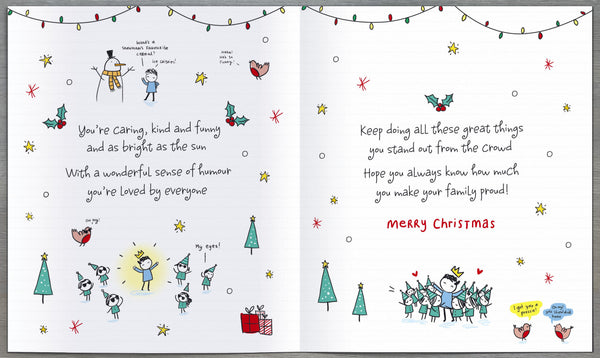 What's a
snowman's favourite
cereal?
Icy Crispies!
Haha!
You're caring, kind and funny
and as bright as the sun
With a wonderful sense of humour
you're loved by everyone
My eyes!
Keep doing all these great things
you stand out from the crowd
Hope you always know how much
you make your family proud!
MERRY CHRISTMAS
I got you a
present!